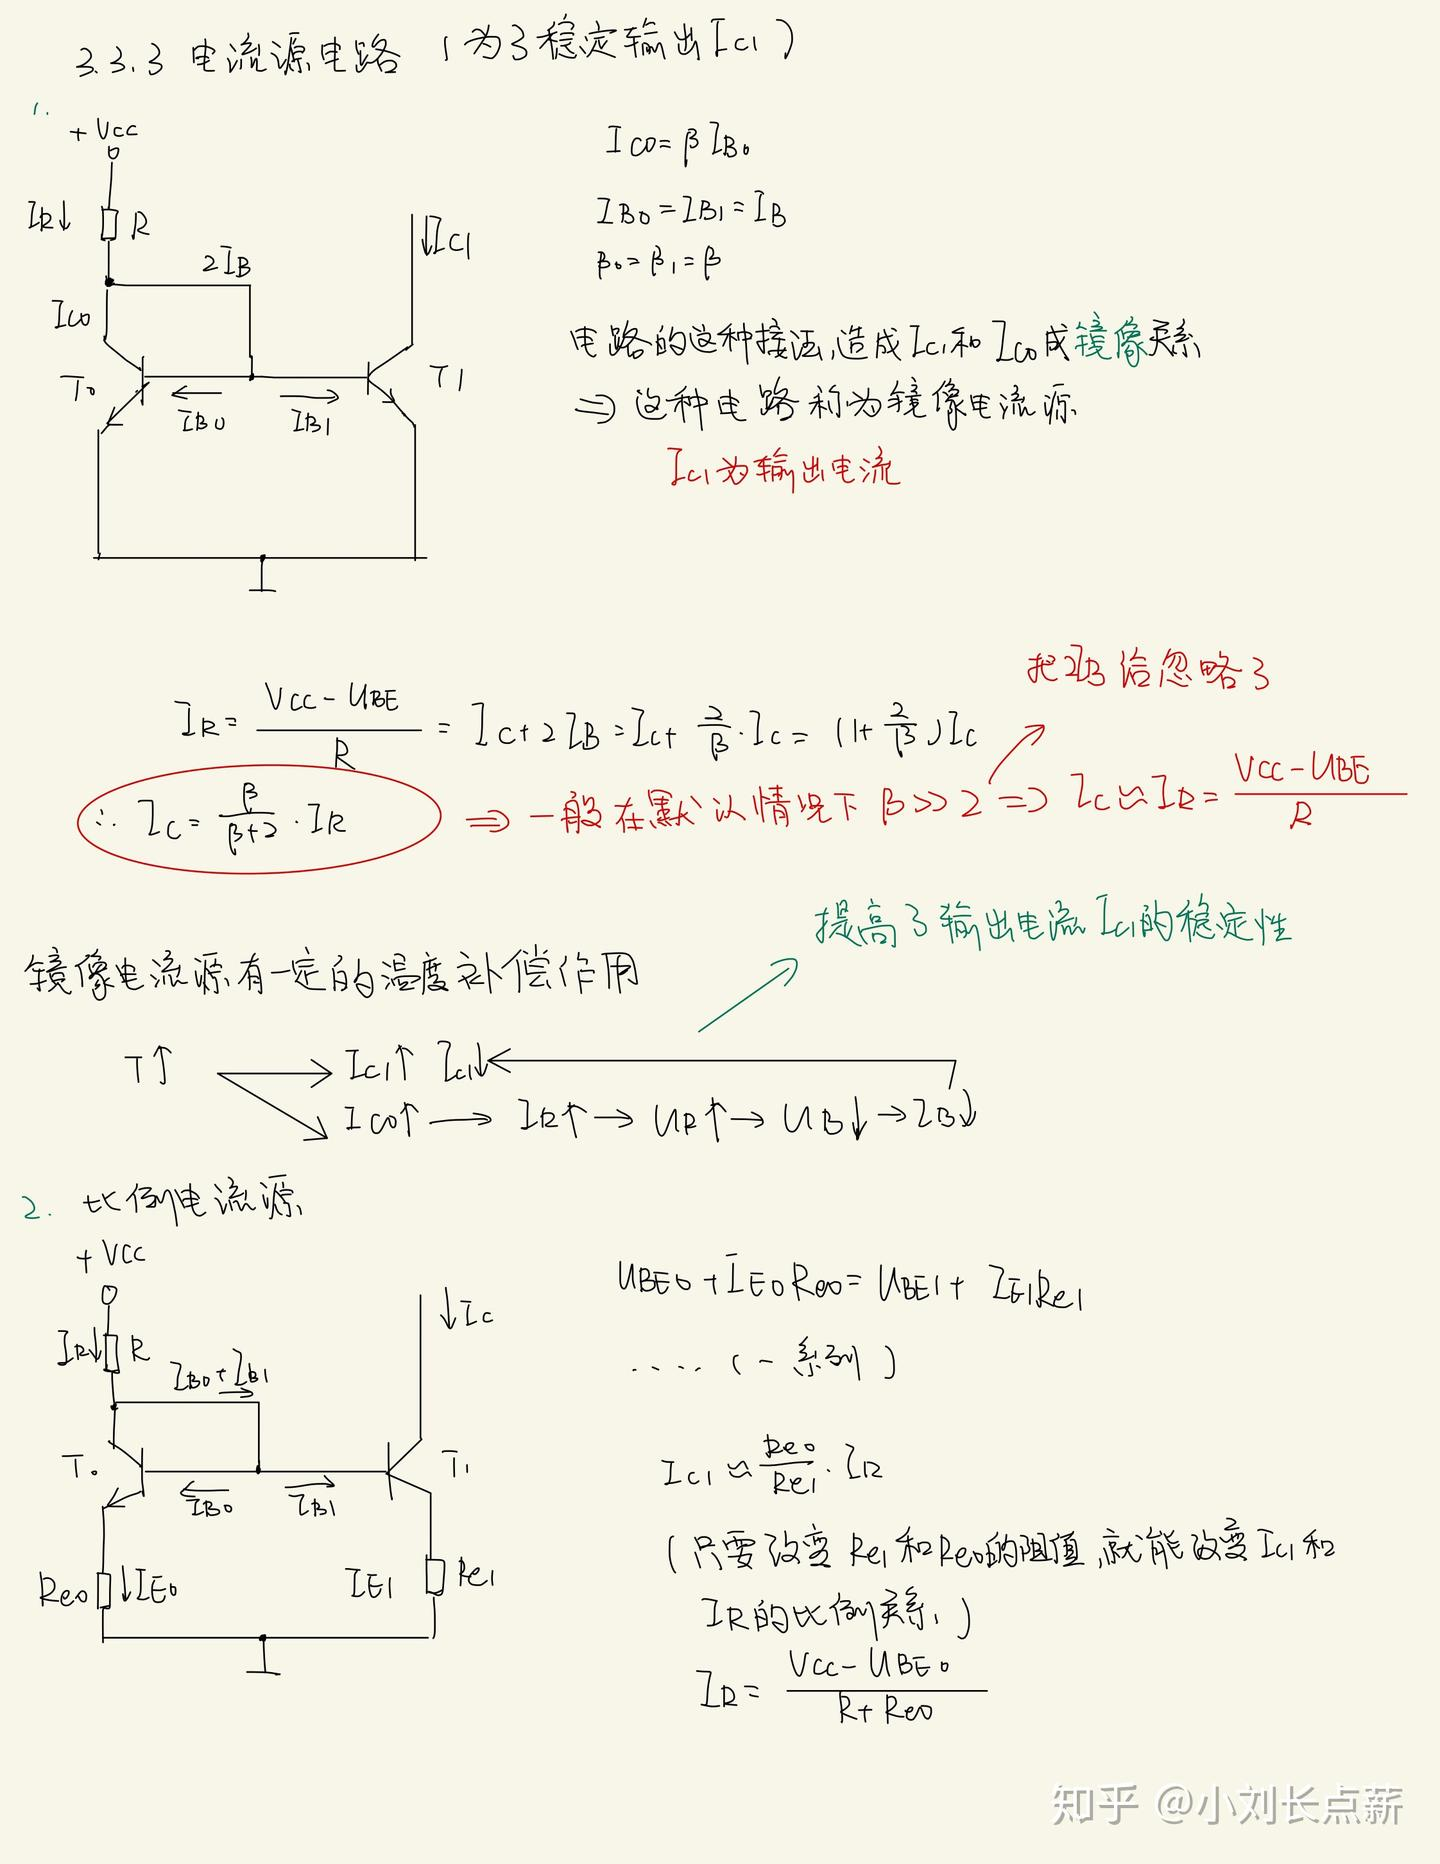 3.3.3 电流源电路 (为了稳定输出IC1)
1.
+VCC
IR↓ R
2IB
↓IC1
IC0
T0
T1
IB0 IB1
IC0=βIB0
IB0=IB1=IB
β0=β1=β
电路的这种接法,造成IC1和IC0成镜像关系
⇒ 这种电路称为镜像电流源
IC1为输出电流
把2IB给忽略了
IR= (VCC-UBE)/R = IC+2IB=IC+ 2/β·IC= (1+2/β)IC
∴ IC= β/(β+2) · IR ⇒ 一般在默认情况下 β>>2 ⇒ IC≈IR= (VCC-UBE)/R
提高了输出电流IC1的稳定性
镜像电流源有一定的温度补偿作用
T↑ → IC1↑ IC1↓←
IC0↑ → IR↑ → UR↑ → UB↓ → IB↓
2. 比例电流源
+VCC
IR↓ R
IB0+IB1
↓IC
T0
T1
IB0 IB1
Re0 ↓IE0
IE1 Re1
UBE0+IE0Re0=UBE1+IE1Re1
.... (一系列)
IC1≈Re0/Re1·IR
(只要改变Re1和Re0的阻值,就能改变IC1和
IR的比例关系.)
IR= (VCC-UBE0)/(R+Re0)
知乎 @小刘长点薪